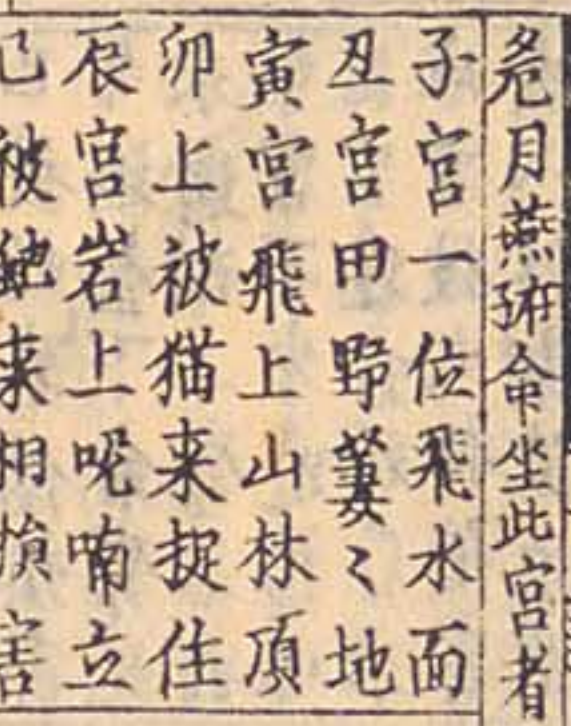 危月燕㺷命坐此宫者
子宫一位飛水面
丑宫田野萋〻地
寅宫飛上山林頂
卯上被猫来捉住
辰宫岩上呢喃立
巳被蛇来相損害